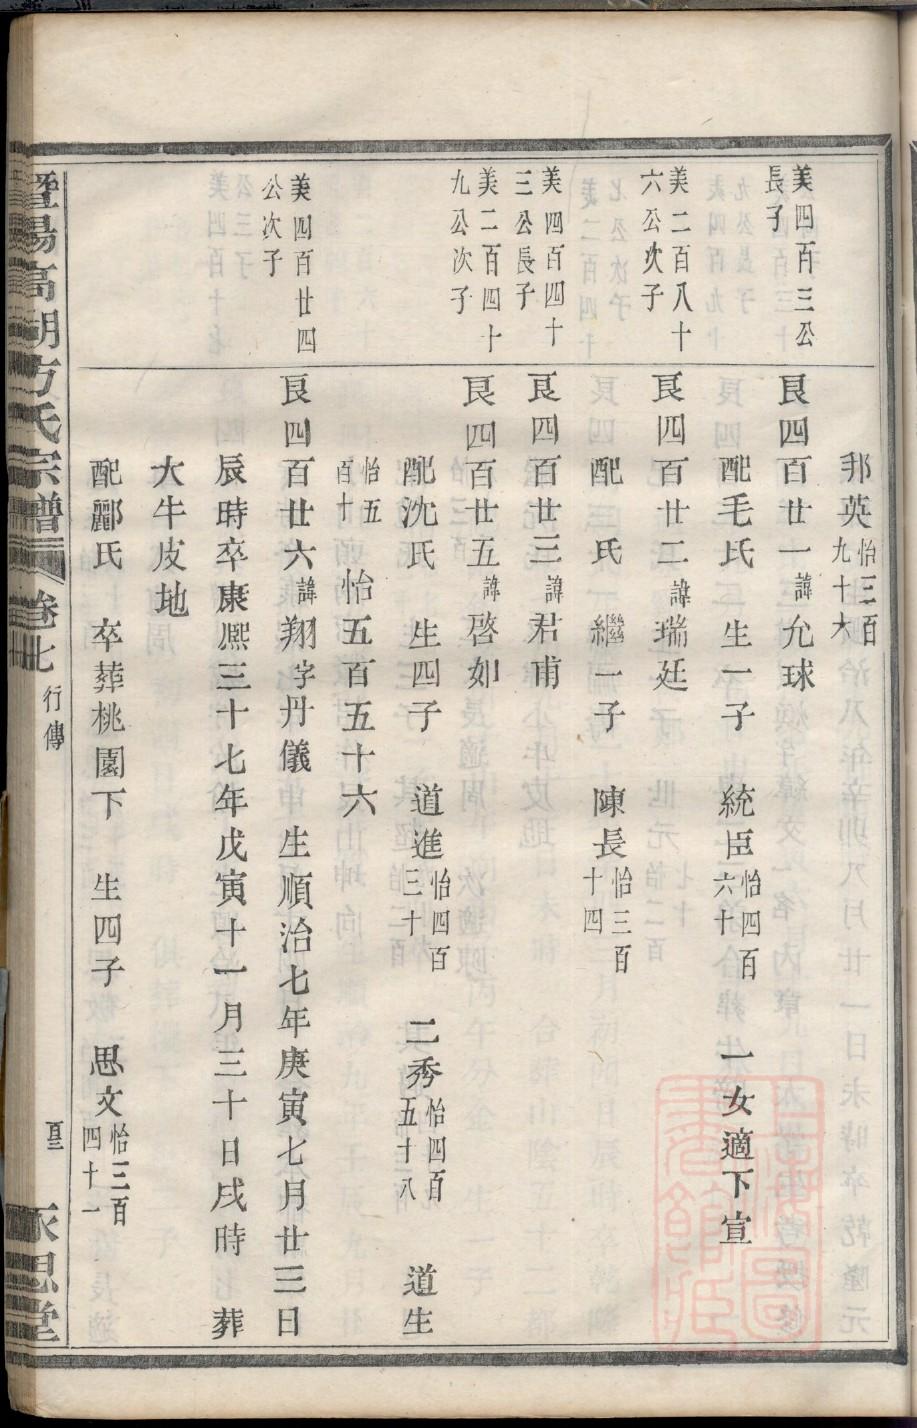 邦英怡三百九十六
美四百三公長子
艮四百廿一諱允球
配毛氏 生一子 統臣怡四百六十 一女適下宣
美二百八十六公次子
艮四百廿二諱瑞廷
配 氏 繼一子 陳長怡三百十四
美四百四十三公長子
艮四百廿三諱君甫
美二百四十九公次子
艮四百廿五諱啓如
配沈氏 生四子 道進怡四百三十 二秀怡四百五十八 道生
怡五百十 怡五百五十六
美四百廿四公次子
艮四百廿六諱翔字丹儀 生順治七年庚寅七月廿三日
辰時卒康熈三十七年戊寅十一月三十日戌時 葬
大牛皮地
配酈氏 卒葬桃園下 生四子 思文怡三百四十一
暨陽高湖方氏宗譜 卷七 行傳 永思堂